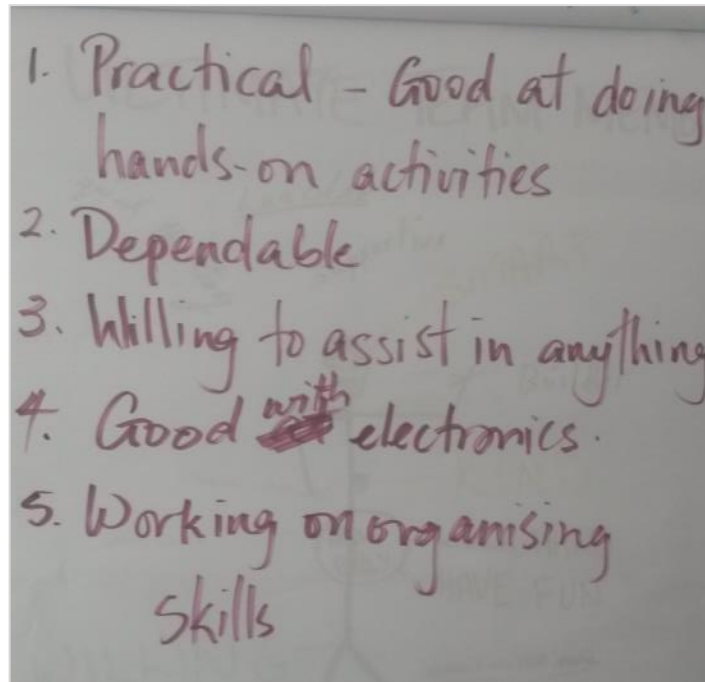 1. Practical - Good at doing
hands-on activities
2. Dependable
3. Willing to assist in anything
4. Good with electronics.
5. Working on organising
skills